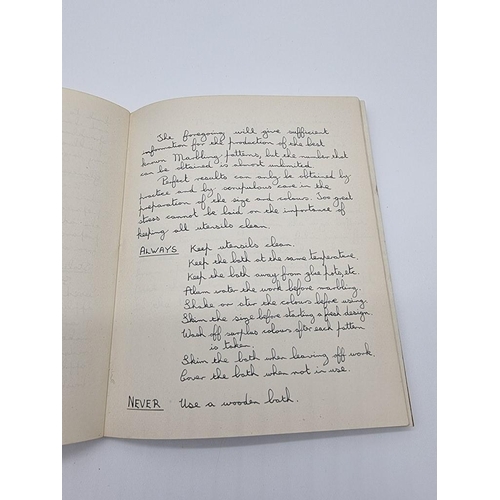 The foregoing will give sufficient
information for the production of the best
known Marbling patterns, but the number that
can be obtained is almost unlimited.
Perfect results can only be obtained by
practice and by compulous care in the
preparation of the size and colours. Too great
stress cannot be laid on the importance of
keeping all utensils clean.
ALWAYS Keep utensils clean.
Keep the bath at the same temperature.
Keep the bath away from glue pots, etc.
Alum water the work before marbling.
Shake or stir the colours before using.
Skim the size before starting a fresh design.
Wash off surplus colours after each pattern
is taken.
Skim the bath when leaving off work.
Cover the bath when not in use.
NEVER Use a wooden bath.